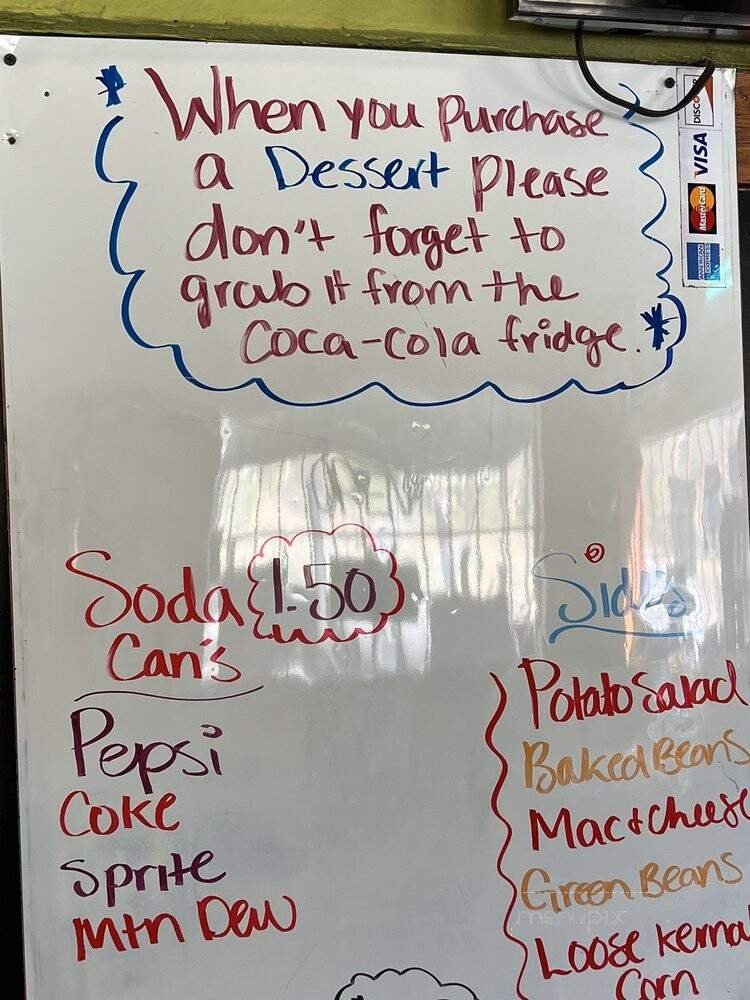 *When you Purchase
a Dessert Please
don't forget to
grab it from the
Coca-Cola fridge.*
DISCOVER
VISA
MasterCard
AMERICAN EXPRESS
Soda 1.50
Can's
Pepsi
Coke
Sprite
Mtn Dew
Side's
Potato Salad
Baked Beans
Mac & Cheese
Green Beans
Loose Kernal
Corn
menupix